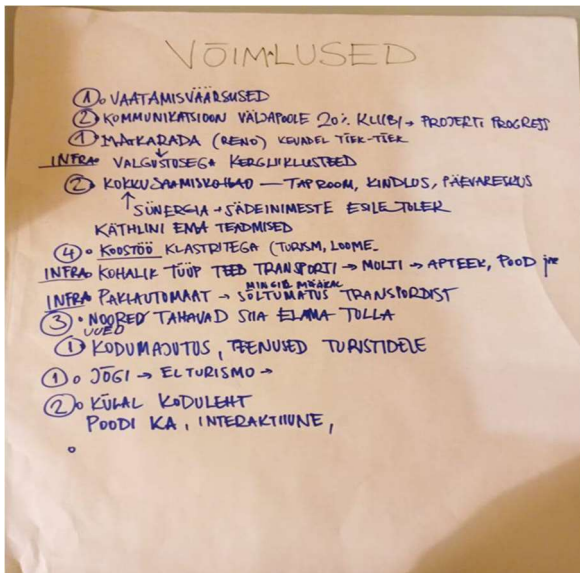 VÕIMLUSED
① VAATAMISVÄÄRSUSED
② KOMMUNIKATSIOON VÄLJAPOOLE 20% KLUBY → PROJEKTI PROGRESS
① MATKARADA (RENO) KEVADEL TIEK-TIEK
INFRA VALGUSTUSEGA KERGLIIKLUSTEED
② KOKKUSAAMISKOHAD — TAPROOM, KINDLUS, PÄEVAKESKUS
↑ SÜNERGIA → SÄDEINIMESTE ESILE TOLEK
KÄTHLINI EMA TEADMISED
④ KOOSTÖÖ KLASTRITEGA (TURISM, LOOME
INFRA KOHALIK TÜÜP TEEB TRANSPORTI → MOLTI → APTEEK, POOD jne
MINGIL MÄÄRAL
INFRA PAKIAUTOMAAT → SÕLTUMATUS TRANSPORDIST
③ NOORED TAHAVAD SIIA ELAMA TULLA
UUED
① KODUMAJUTUS, TEENUSED TURISTIDELE
① JÕGI → ELTURISMO →
② KÜLAL KODULEHT
POODI KA, INTERAKTIIVNE,